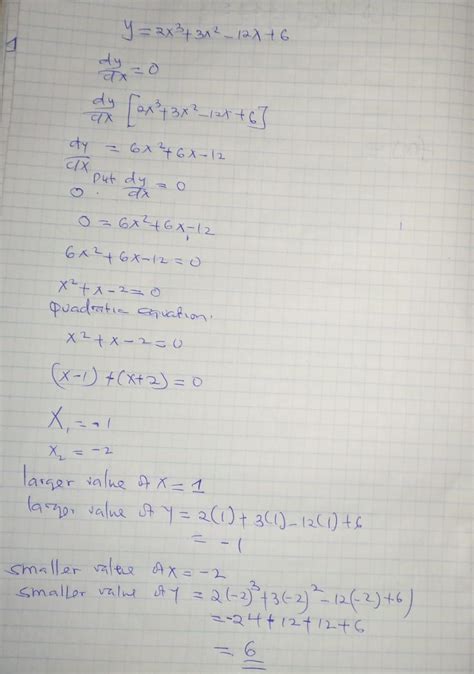 1
y = 2x³+3x²-12x+6
dy/dx = 0
dy/dx [2x³+3x²-12x+6]
dy/dx = 6x²+6x-12
Put dy/dx = 0
0.
0 = 6x²+6x-12
6x²+6x-12=0
x²+x-2=0
Quadratic equation.
x²+x-2=0
(x-1)+(x+2)=0
X₁ = 1
x₂ = -2
larger value of X = 1
larger value of Y = 2(1)+3(1)-12(1)+6
= -1
smaller value of x = -2
smaller value of Y = 2(-2)³+3(-2)²-12(-2)+6)
= -24+12+12+6
= 6